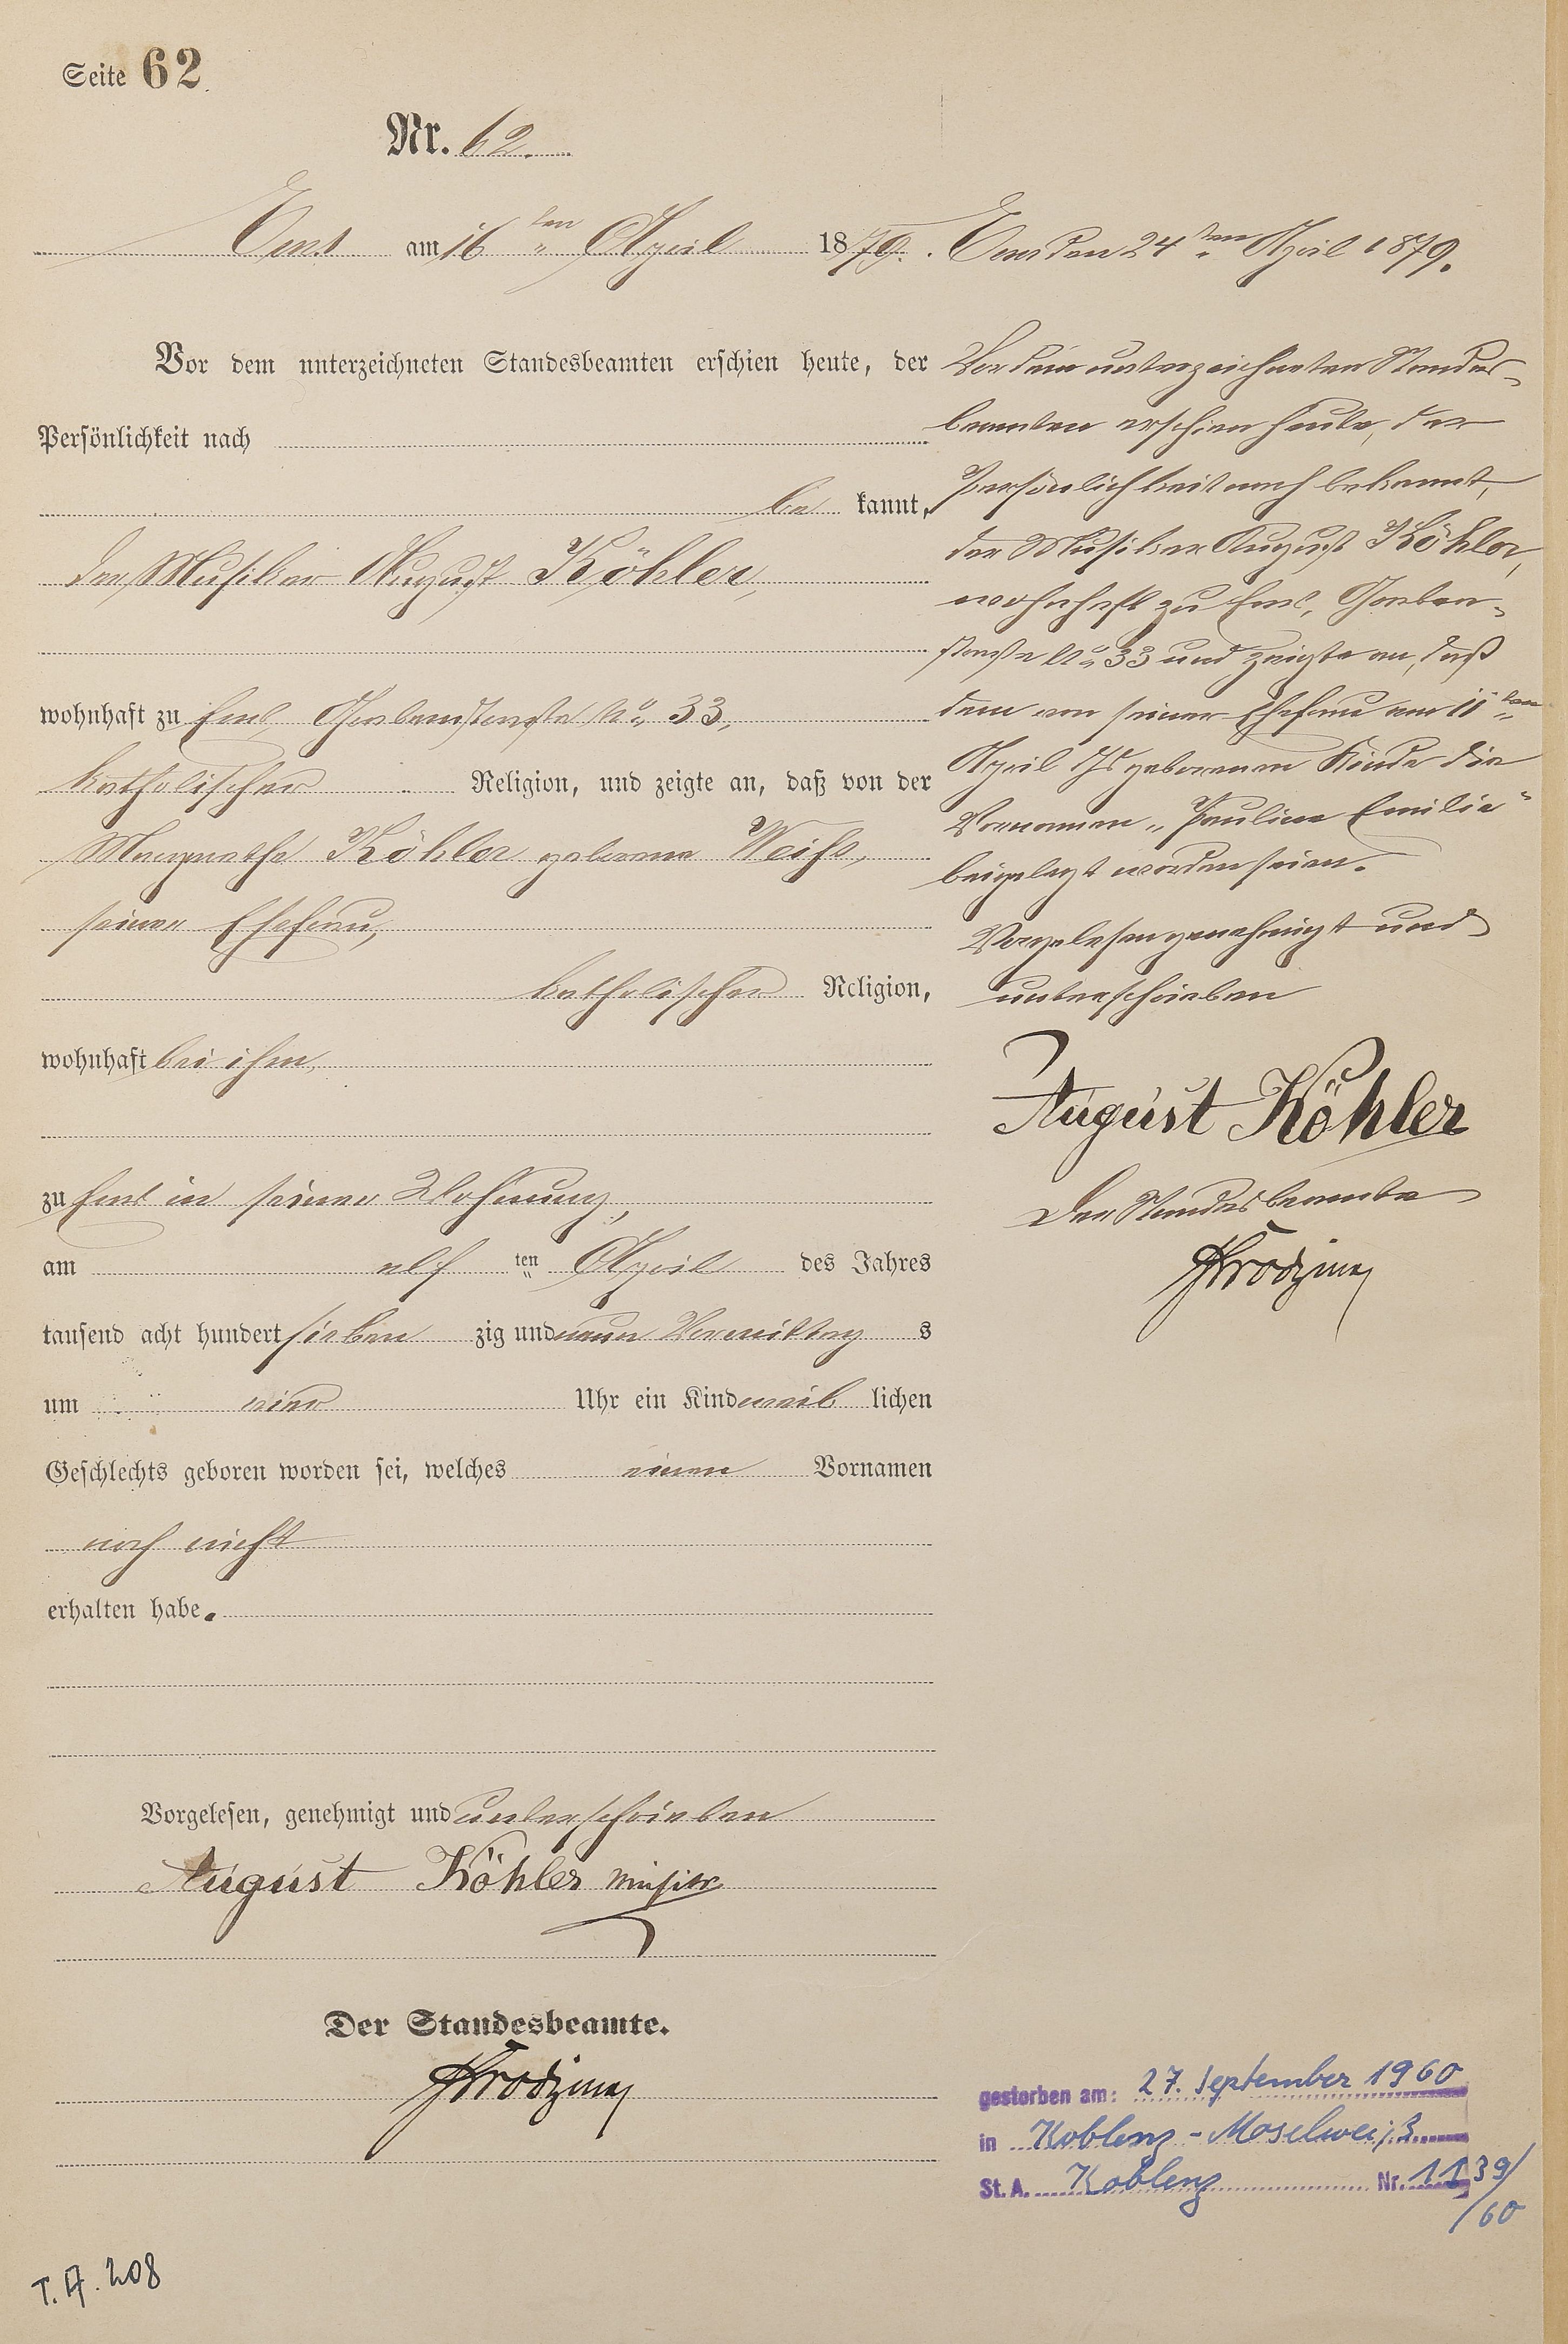 Seite 62
Nr. 62.
Ems am 16 ten April 1879.
Vor dem unterzeichneten Standesbeamten erschien heute, der
Persönlichkeit nach
be kannt,
der Musiker August Köhler,
wohnhaft zu Ems, Grabenstraße No 33,
katholischer Religion, und zeigte an, daß von der
Margarethe Köhler geborene Weiß,
seiner Ehefrau,
katholischer Religion,
wohnhaft bei ihm,
zu Ems in seiner Wohnung,
am elf ten April des Jahres
tausend acht hundert sieben zig und neun Vormittag s
um Uhr ein Kind weib lichen
Geschlechts geboren worden sei, welches einen Vornamen
noch nicht
erhalten habe.
Vorgelesen, genehmigt und unterschrieben
August Köhler Musiker
Der Standesbeamte.
Ems den 24ten April 1879.
Vor dem unterzeichneten Standes-
beamten erschien heute, der
Persönlichkeit nach bekannt,
der Musiker August Köhler,
wohnhaft zu Ems, Graben-
straße No 33 und zeigte an, daß
dem von seiner Ehefrau am 11ten
April Js geborenen Kinde die
Vornamen „Pauline Emilie"
beigelegt worden seien.
Vorgelesen genehmigt und
unterschrieben
August Köhler
Der Standesbeamte
gestorben am: 27. September 1960
in Koblenz-Moselweiß
St. A. Koblenz Nr. 1139/
/60
T. A. 208